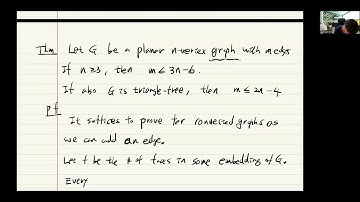 Thm Let G be a planar n-vertex graph with m edges
If n≥3, then m ≤ 3n-6.
If also G is triangle-free, then m ≤ 2n-4
Pf It suffices to prove for connected graphs as
we can add an edge.
Let f be the # of faces in some embedding of G.
Every